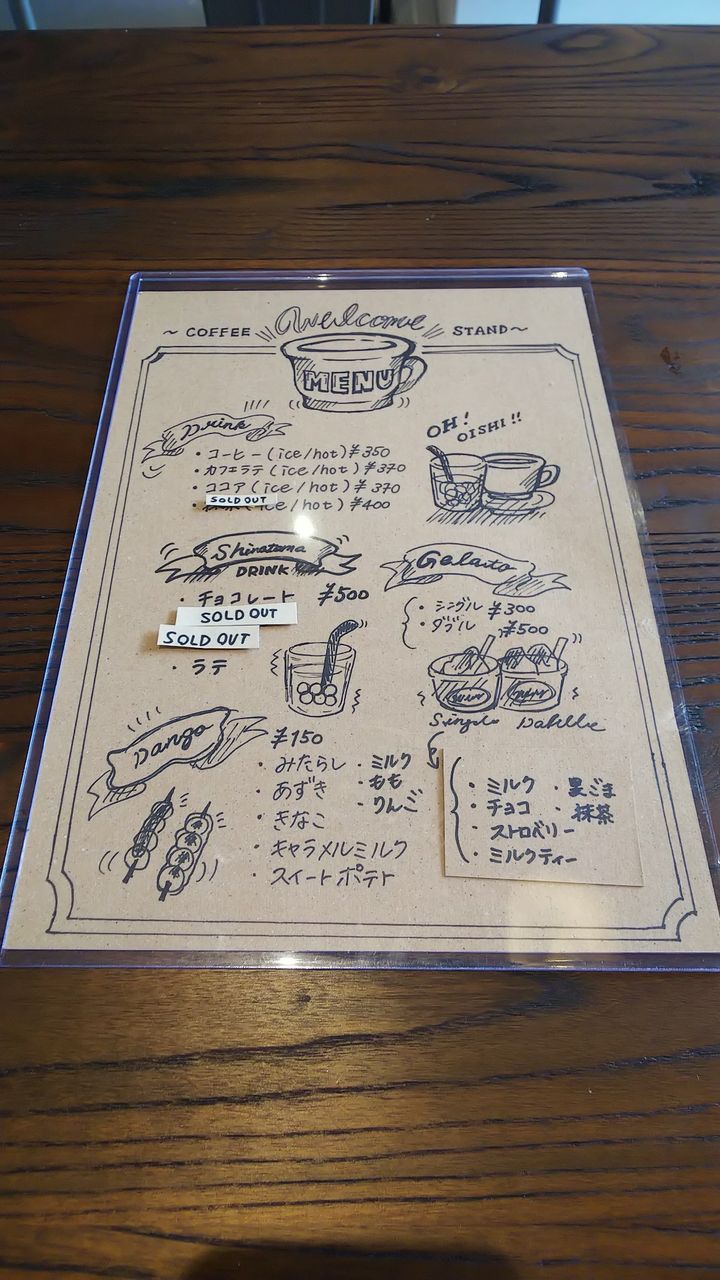 Welcome
~ COFFEE STAND ~
MENU
Drink
・コーヒー (ice/hot) ¥350
・カフェラテ (ice/hot) ¥370
・ココア (ice/hot) ¥370
SOLD OUT
(ice/hot) ¥400
OH!
OISHI!!
Shiratama
DRINK
・チョコレート ¥500
SOLD OUT
SOLD OUT
・ラテ
Gelaito
・シングル ¥300
・ダブル ¥500
Dango
¥150
・みたらし
・あずき
・きなこ
・キャラメルミルク
・スイートポテト
・ミルク
・もも
・りんご
・ミルク
・チョコ
・ストロベリー
・ミルクティー
・黒ごま
・抹茶